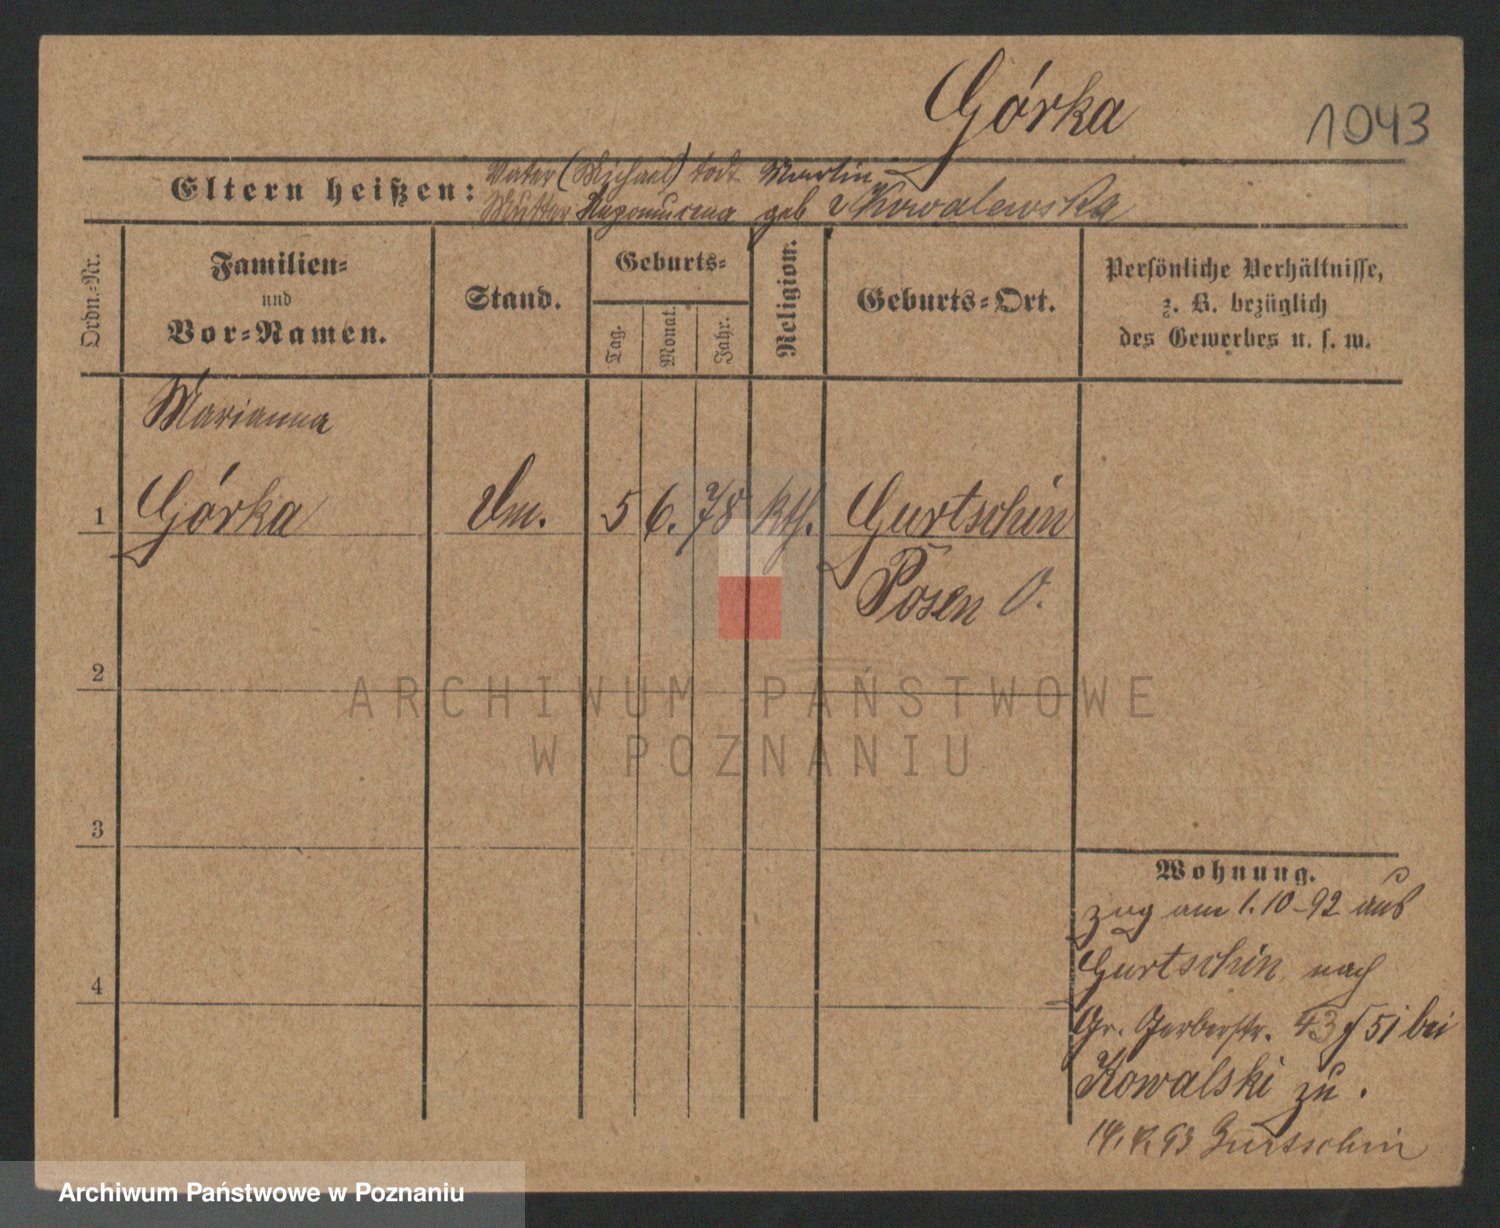 Górka
1043
Eltern heißen:
Vater (Michael) todt Martin
Mutter Nepomucena geb Kowalewska
Ordn.-Nr.
Familien-
und
Vor-Namen.
Stand.
Geburts-
Tag.
Monat.
Jahr.
Religion.
Geburts-Ort.
Persönliche Verhältnisse,
z. B. bezüglich
des Gewerbes u. s. w.
Marianna
1 Górka Dm. 5 6. 78 kth. Gurtschin
Posen O.
2
3
4
Wohnung.
zog am 1.10-92 aus
Gurtschin nach
Gr. Gerberstr. 43 51 bei
Kowalski zu.
93 Gurtschin
ARCHIWUM PAŃSTWOWE
W POZNANIU
Archiwum Państwowe w Poznaniu